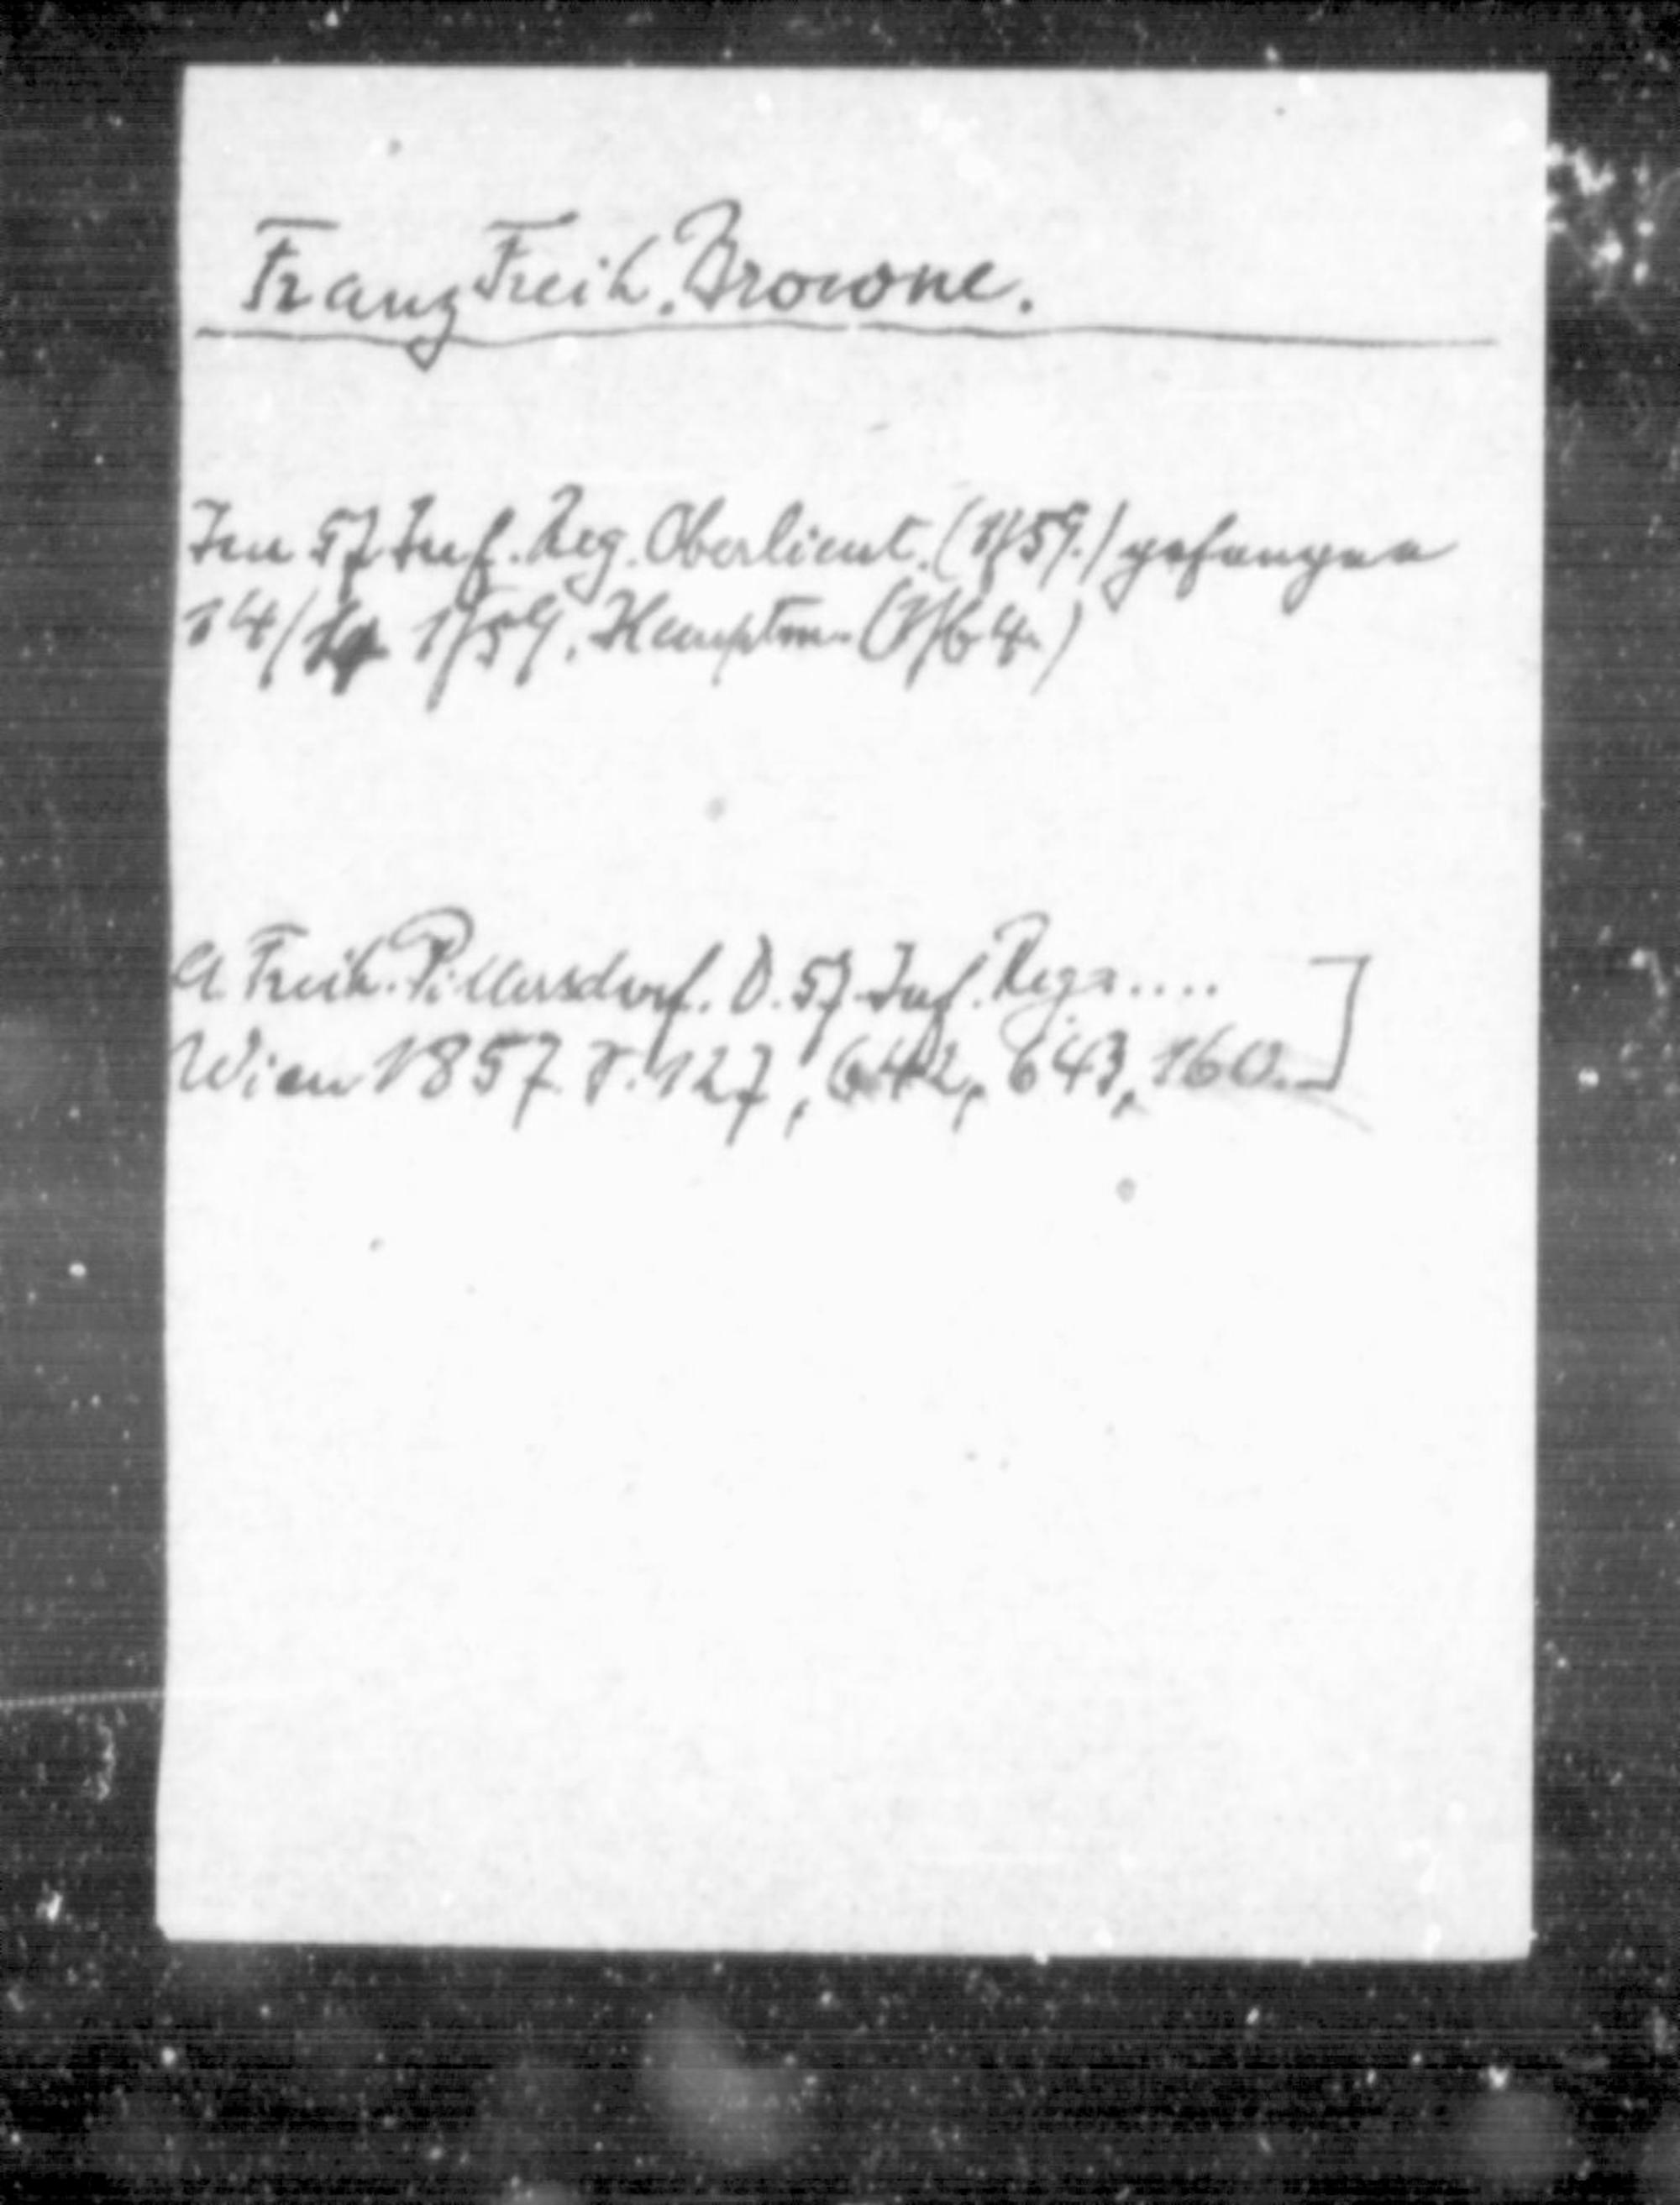 Franz Freih. Browne.
Im 57 Inf. Reg. Oberlieut. (1759.) gefangen
14/ 1759. Hauptm. (1764.)
A. Freih. Pillersdorf. D. 57. Inf. Regs....
Wien 1857. S. 127, 642, 643, 160.]